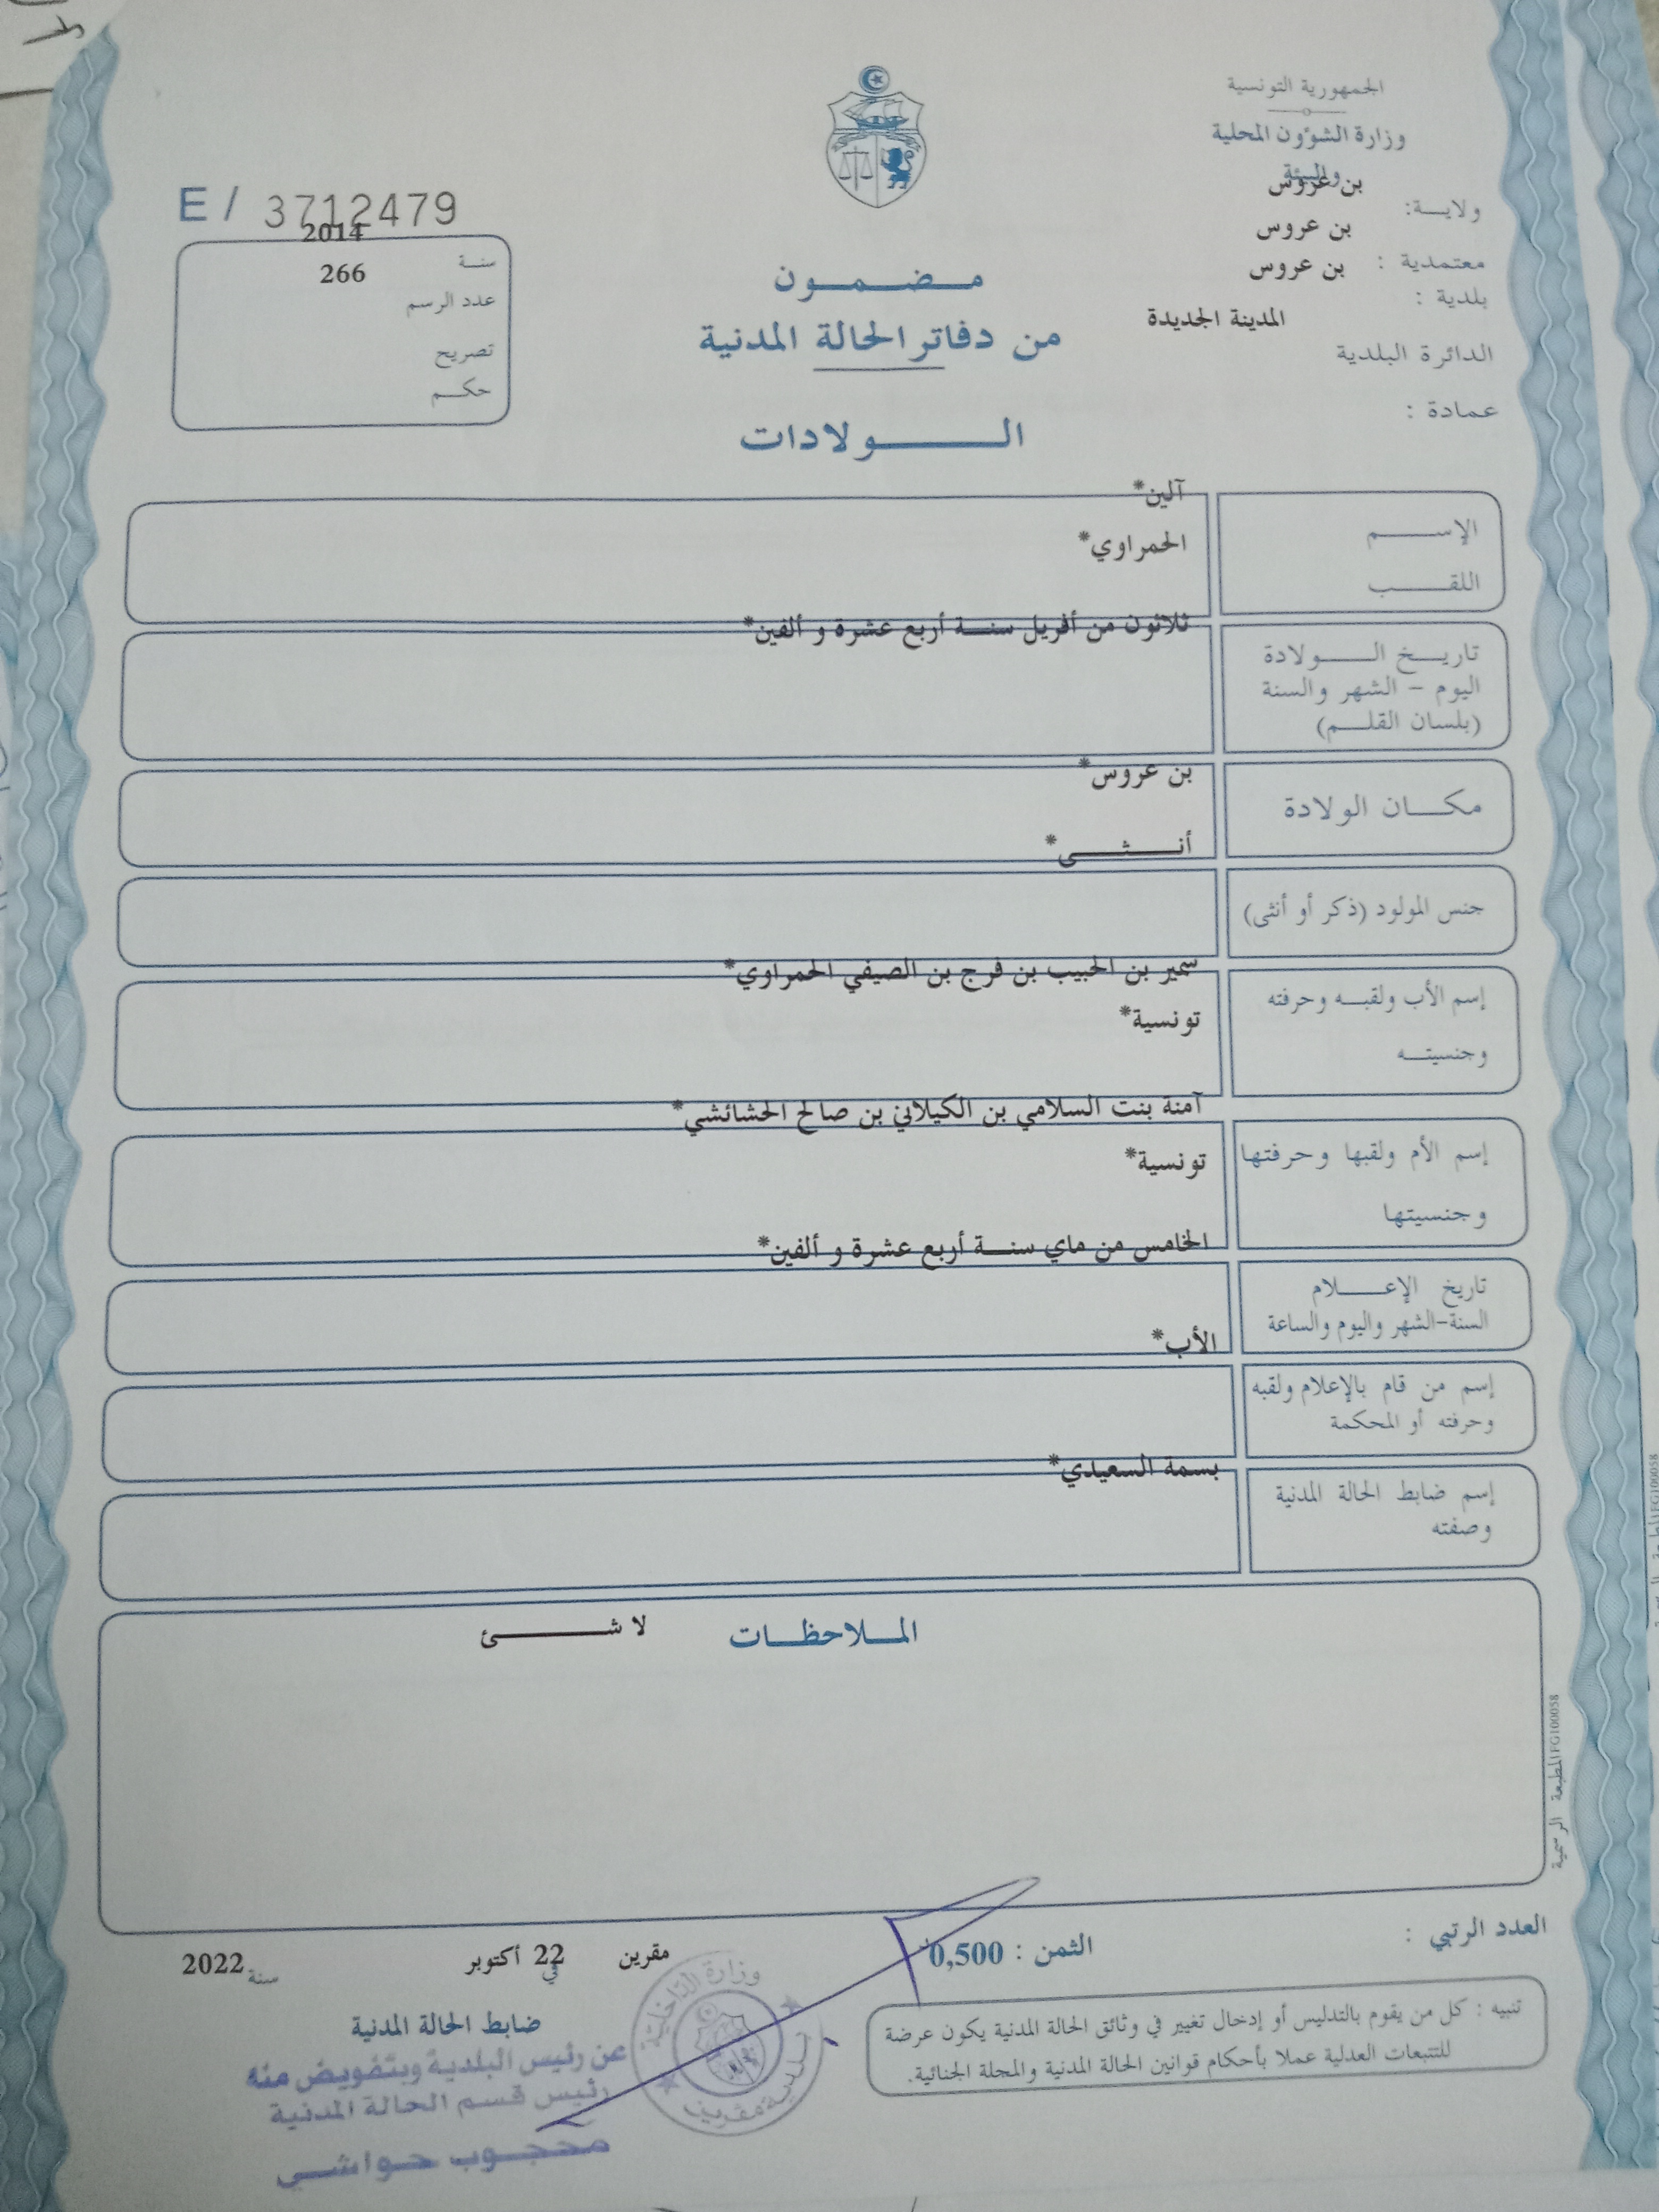 الجمهورية التونسية
وزارة الشؤون المحلية
والبيئة
ولايـــة: بن عروس
معتمدية : بن عروس
بلدية : بن عروس
الدائرة البلدية المدينة الجديدة
عمادة :
E / 3712479
سنـة 2014
عدد الرسم 266
تصريح
حكـم
مـضـمـون
من دفاتر الحالة المدنية
الـولادات
الإســـم آلين*
اللقـــب الحمراوي*
تاريـخ الـولادة ثلاثون من أفريل سنـة أربع عشرة و ألفين*
اليوم – الشهر والسنة
(بلسان القلـم)
مكـان الولادة بن عروس*
جنس المولود (ذكر أو أنثى) أنـثـى*
إسم الأب ولقبـه وحرفته سمير بن الحبيب بن فرج بن الصيفي الحمراوي*
وجنسيتـه تونسية*
إسم الأم ولقبها وحرفتها آمنة بنت السلامي بن الكيلاني بن صالح الحشائشي*
وجنسيتها تونسية*
تاريخ الإعــلام الخامس من ماي سنـة أربع عشرة و ألفين*
السنة-الشهر واليوم والساعة
إسم من قام بالإعلام ولقبه الأب*
وحرفته أو المحكمة
إسم ضابط الحالة المدنية بسمة السعيدي*
وصفته
المـلاحظـات لا شـــئ
المطبعة الرسمية FG100058
العدد الرتبي :
الثمن : 0,500
مقرين في 22 أكتوبر سنة 2022
تنبيه : كل من يقوم بالتدليس أو إدخال تغيير في وثائق الحالة المدنية يكون عرضة
للتتبعات العدلية عملا بأحكام قوانين الحالة المدنية والمجلة الجنائية.
ضابط الحالة المدنية
عن رئيس البلدية وبتفويض منه
رئيس قسم الحالة المدنية
محجوب حواشي
وزارة الداخلية
بلدية مقرين